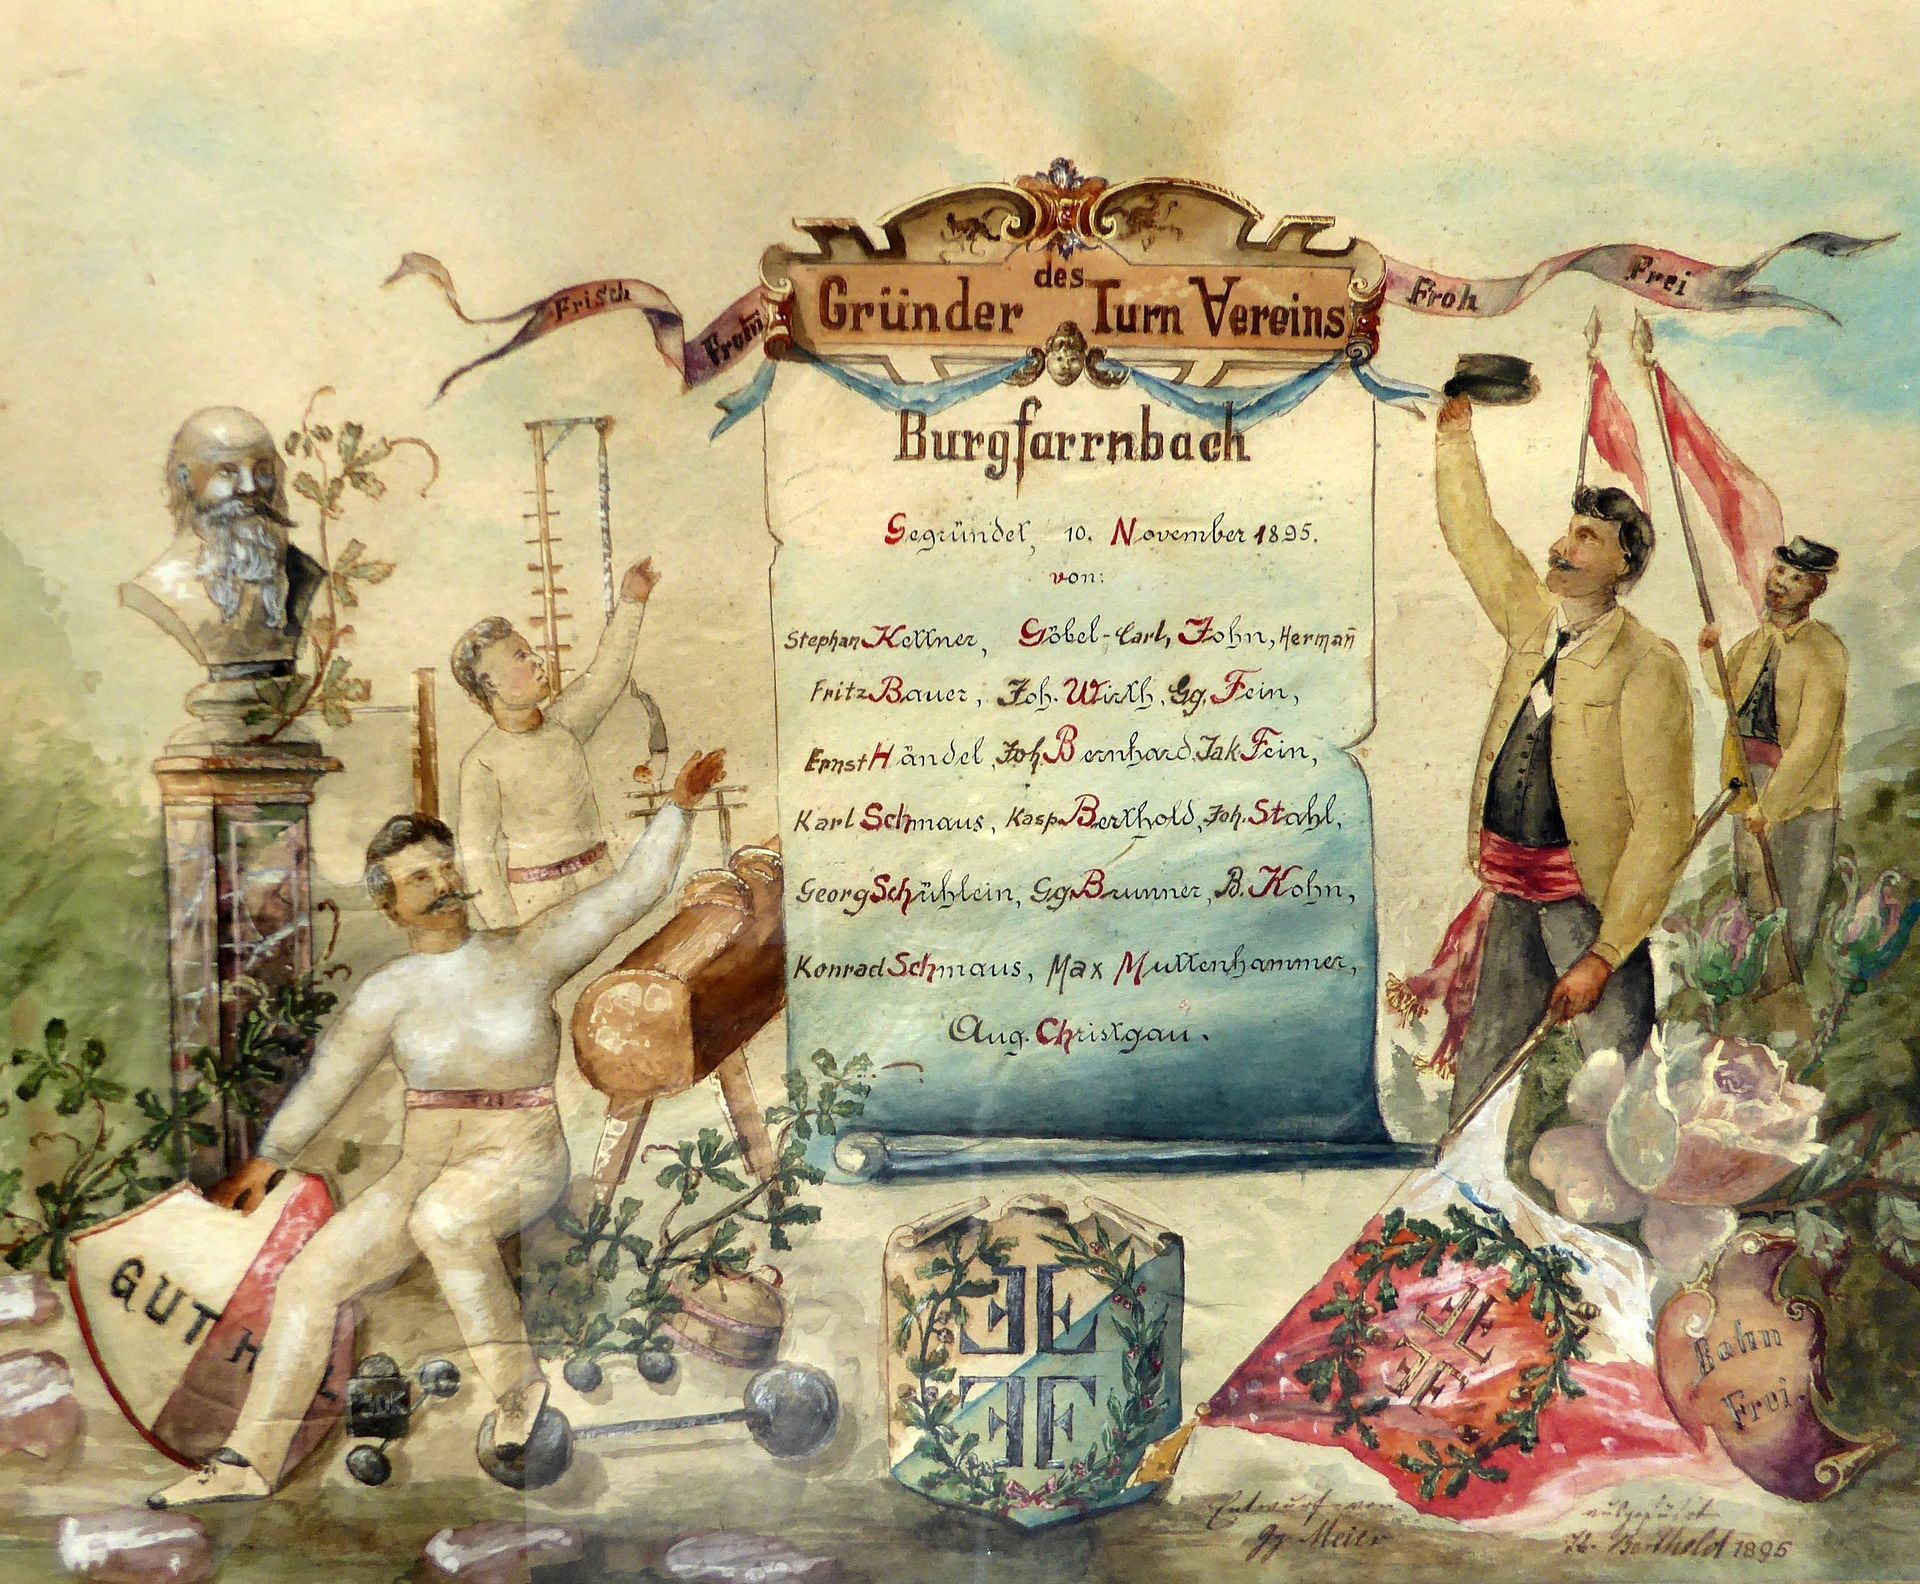 Frisch Fromm Froh Frei
des
Gründer Turn Vereins
Burgfarrnbach
Gegründet, 10. November 1895.
von:
Stephan Kettner, Göbel-Carl, John, Hermañ
Fritz Bauer, Joh. Wirth, Gg. Fein,
Ernst Händel, Joh. Bernhard, Jak Fein,
Karl Schmaus, Kasp. Berthold, Joh. Stahl,
Georg Schühlein, Gg. Brunner, B. Kohn,
Konrad Schmaus, Max Muttenhammer,
Aug. Christgau.
GUT H L
FF
FF
FF
FF
Bahn
Frei.
Entwurf von
Gg Meier
ausgeführt
K. Berthold 1895